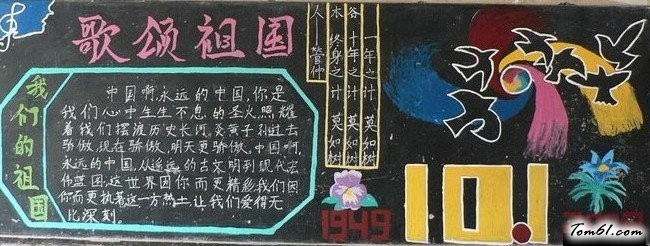 歌颂祖国
我们的祖国
中国啊,永远的中国,你是
我们心中生生不息的圣火照耀
着我们摆渡历史长河,炎黄子孙过去
骄傲,现在骄傲,明天更骄傲,中国啊,
永远的中国,从遥远的古文明到现代宏
伟蓝图,这世界因你而更精彩我们因
你而更执着这一方热土,让我们爱得无
比深刻.
一年之计 莫如树
谷 十年之计 莫如树
木 终身之计 莫如树
人——管仲
1949
10.1
Tom61.Com